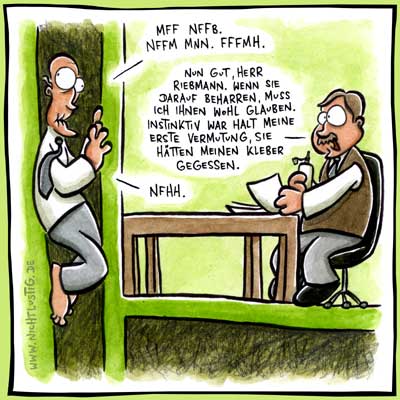 MFF NFFB.
NFFM MNN. FFFMH.
NUN GUT, HERR
RIEBMANN. WENN SIE
DARAUF BEHARREN, MUSS
ICH IHNEN WOHL GLAUBEN.
INSTINKTIV WAR HALT MEINE
ERSTE VERMUTUNG, SIE
HÄTTEN MEINEN KLEBER
GEGESSEN.
NFHH.
WWW.NICHTLUSTIG.DE